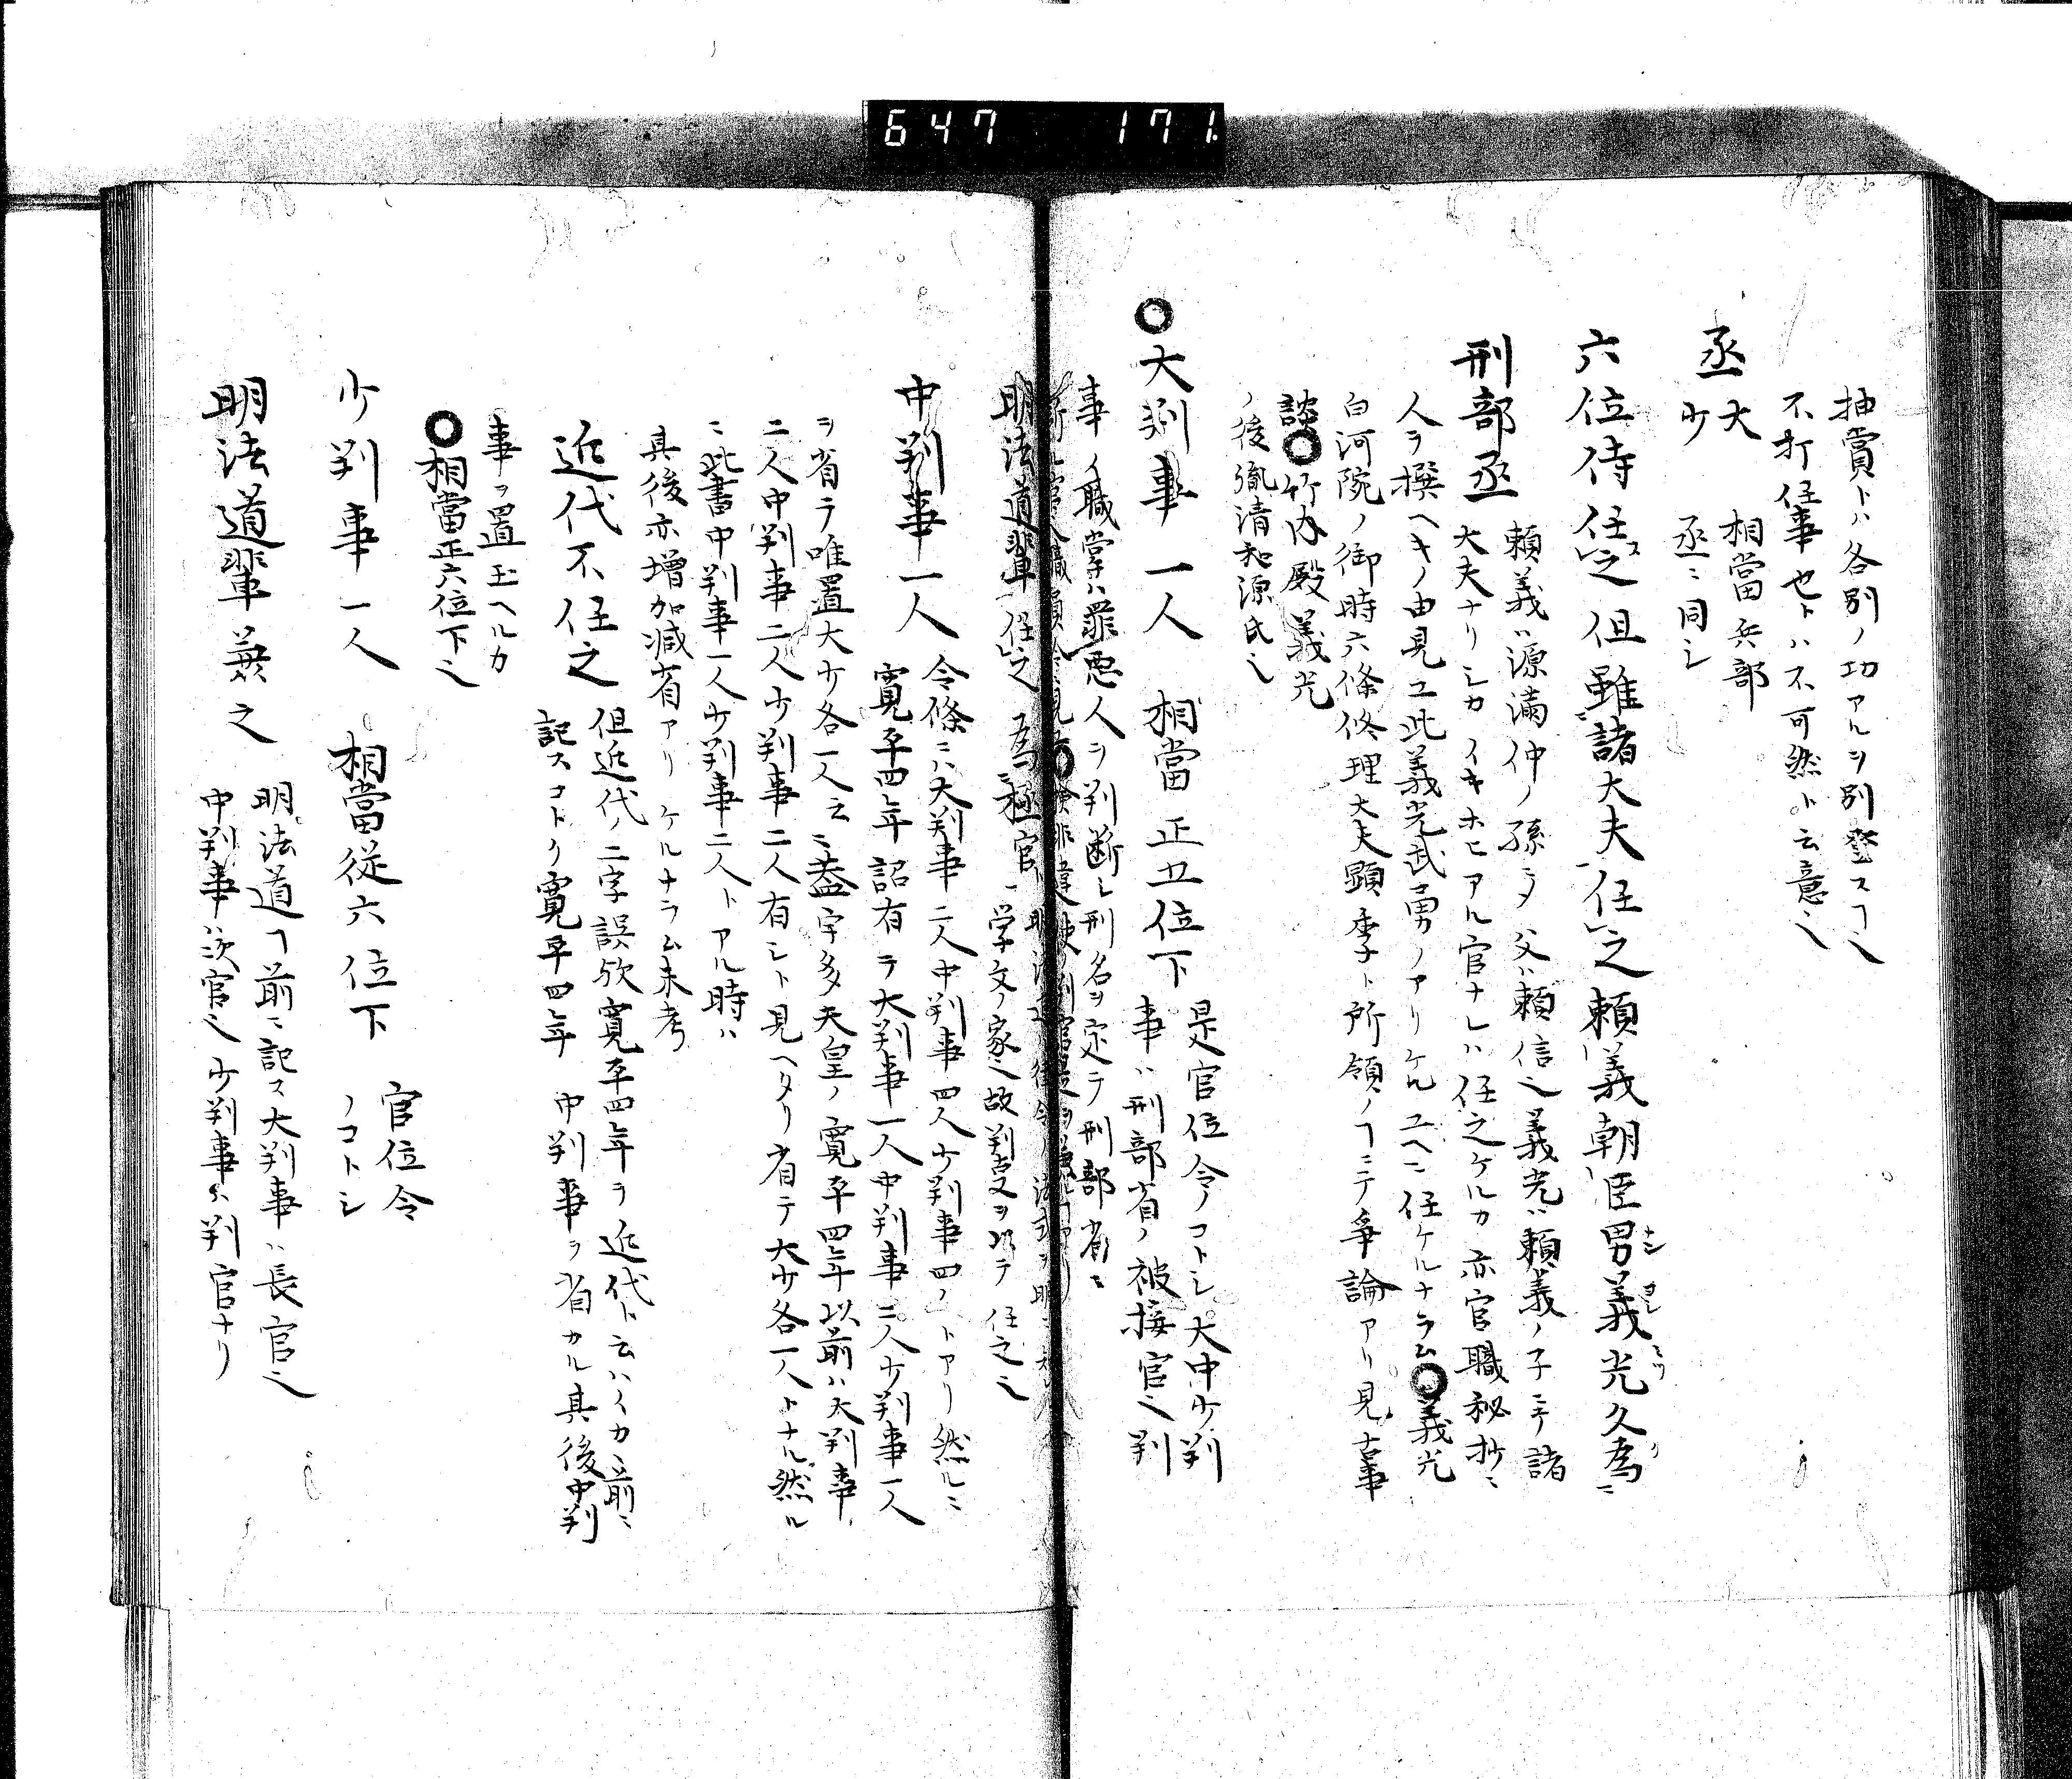 647 171
抽賞トハ各別ノ功アルヲ別賞スヿ也
不打任事也トハ不可然ト云意也
丞 大 相當兵部
少 丞ニ同シ
六位侍任之但雖諸大夫任之頼義朝臣男義光久為
刑部丞 頼義ハ源満仲ノ孫ニテ父ハ頼信也義光ハ頼義ノ子ニテ諸
大夫ナリシカイキホヒアル官ナレハ任之ケルカ亦官職秘抄ニ
人ヲ撰ヘキノ由見ユ此義光武勇ノアリケルユヘニ任ケルナラム○義光
白河院ノ御時六條修理大夫顕季ト所領ノヿニテ争論アリ見古事
談○竹内殿義光
ノ後胤清和源氏也
○大判事 一人 相當正五位下 是官位令ノコトシ大中少判
事ハ刑部省ノ被接官也判
事ノ職掌ハ罪悪人ヲ判断シ刑名ヲ定テ刑部省ニ
明法道輩任之 為極官
学文ノ家也故判事ヲ以テ任之也
中判事一人 令條ニハ大判事二人中判事四人少判事四人トアリ然ルニ
寛平四年詔有テ大判事一人中判事二人少判事一人
ヲ省テ唯置大少各一人云々蓋宇多天皇ノ寛平四年以前ハ大判事
二人中判事二人少判事二人有シト見ヘタリ省テ大少各一人トナル然ル
ニ此書中判事一人少判事二人トアル時ハ
其後亦増加減省アリケルナラム未考
近代不任之 但近代ノ二字誤歟寛平四年ヲ近代ト云ハイカヽ前ニ
記スコトク寛平四年中判事ヲ省カル其後中判
事ヲ置玉ヘルカ
○相當正六位下也
少判事一人 相當従六位下 官位令
ノコトシ
明法道輩兼之 明法道ノヿ前ニ記ス大判事ハ長官也
中判事ハ次官也少判事ハ判官ナリ